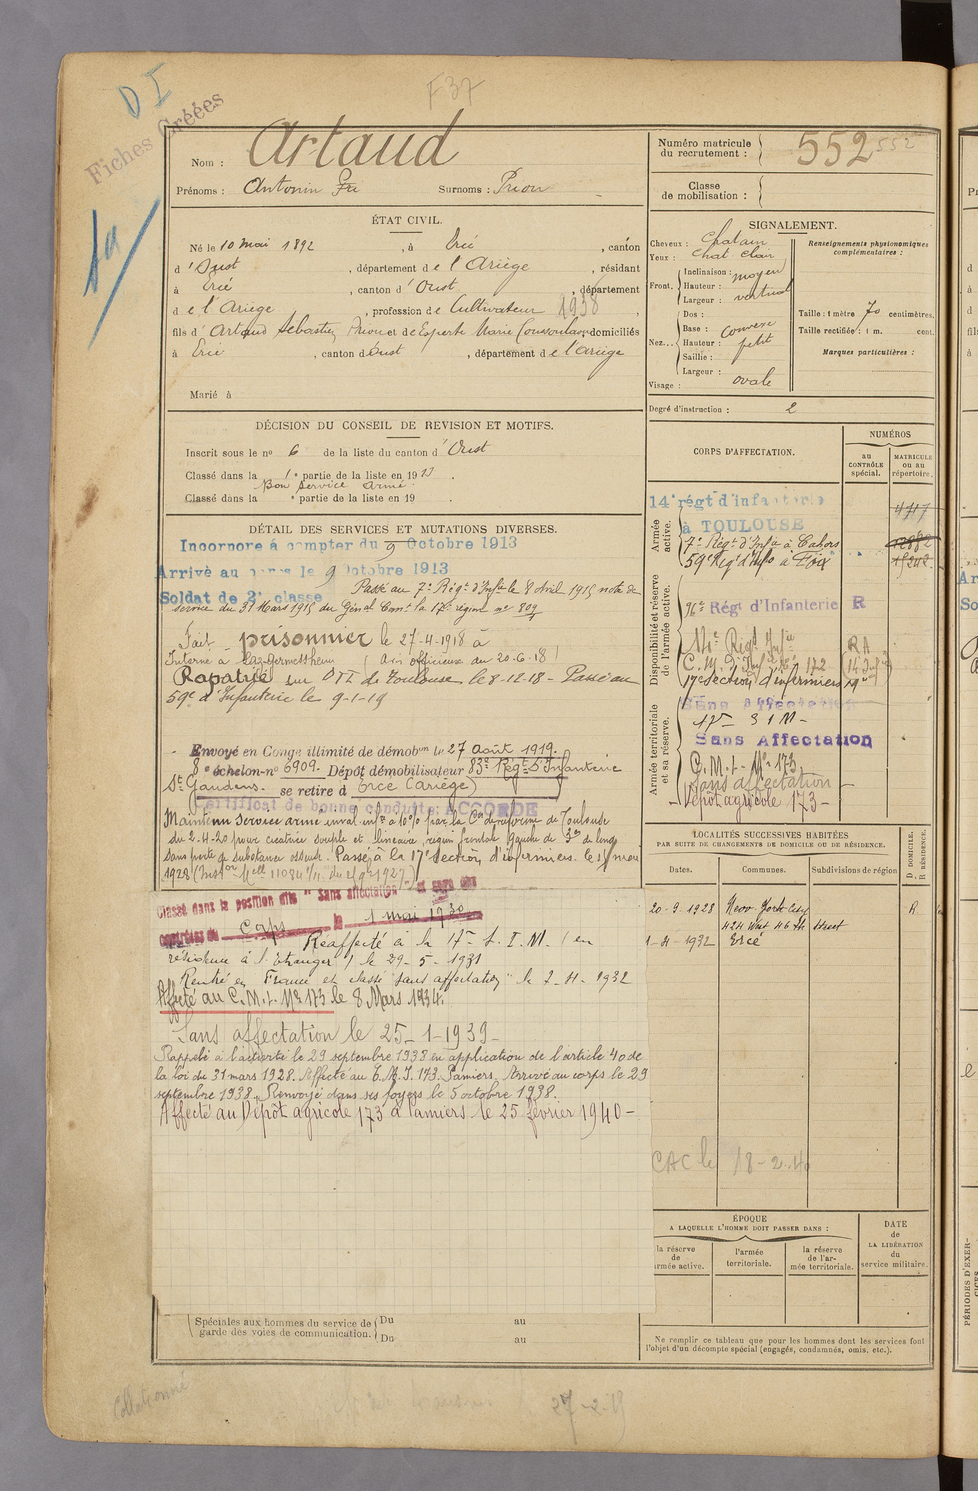 D I
F 37
Fiches Créées
Nom : Artaud
Prénoms : Antonin Surnoms : Prion
Numéro matricule du recrutement : 552
552
Classe de mobilisation :
ÉTAT CIVIL.
Né le 10 mai 1892, à Ercé, canton
d'Oust, département de l'Ariège, résidant
à Ercé, canton d'Oust, département
de l'Ariège, profession de Cultivateur 1938
fils d'Artaud Sébastien Prion et de Esperte Marie domiciliés
à Ercé, canton d'Oust, département de l'ariège
Marié à
SIGNALEMENT.
Cheveux : Chatain
Yeux : Chat. clair
Front. Inclinaison : moyen
Hauteur :
Largeur : vertical
Nez... Dos :
Base : Convexe
Hauteur : petit
Saillie :
Largeur :
Visage : ovale
Renseignements physionomiques complémentaires :
Taille : 1 mètre 70 centimètres.
Taille rectifiée : 1 m. cent.
Marques particulières :
Degré d'instruction : 2
DÉCISION DU CONSEIL DE REVISION ET MOTIFS.
Inscrit sous le no 6 de la liste du canton d'Oust
Classé dans la 1e partie de la liste en 1913.
Bon Service Armé
Classé dans la e partie de la liste en 19 .
DÉTAIL DES SERVICES ET MUTATIONS DIVERSES.
Incorporé à compter du 9 Octobre 1913
Arrivé au corps le 9 Octobre 1913
Soldat de 2e classe Passé au 7e Régt d'Infie le 8 Avril 1915 note de
service du 31 Mars 1915 du Génal Comt la 17e région no 809
Fait prisonnier le 27-4-1918 à
Interné à (Avis officieux du 20-6-18)
Rapatrié sur DTI de Toulouse le 8-12-18 - Passé au
59e d'Infanterie le 9-1-19
Envoyé en Congé illimité de démobon le 27 Août 1919.
8e échelon no 6909. Dépôt démobilisateur 83e Régt d'Infanterie
St Gaudens. se retire à Ercé (Ariège)
Certificat de bonne conduite: ACCORDÉ
Maintenu Service armé inval. infre à 10% par la Con de réforme de Toulouse
du 2-4-20 pour cicatrice souple et linéaire, région frontale gauche de 3cm de long
sans perte de substance osseuse. Passé à la 17e Section d'infirmiers. le 15 mai
1928
Classé dans la position dite "Sans affectation" et rayé des
contrôles du Corps le 1 mai 1930
Réaffecté à la 17e S. I. M. (en
résidence à l'Etranger) le 29-5-1931
Rentré en France et classé "sans affectation" le 2-4-1932
Affecté au C.M.I. No 173 le 8 Mars 1934.
Sans affectation le 25-1-1939-
Rappelé à l'activité le 29 septembre 1938 en application de l'article 40 de
la loi du 31 mars 1928. Affecté au C.M.I. 173. Pamiers. Arrivé au corps le 29
septembre 1938. Renvoyé dans ses foyers le 5 octobre 1938.
Affecté au Dépôt agricole 173 à Pamiers le 25 février 1940-
Spéciales aux hommes du service de garde des voies de communication.
Du au
Du au
CORPS D'AFFECTATION.
NUMÉROS
au CONTRÔLE spécial.
MATRICULE ou au répertoire.
Armée active.
14e régt d'infanterie
à TOULOUSE 4717
7e Régt d'Infie à Cahors
59e Régt d'Info à Foix
Disponibilité et réserve de l'armée active.
96e Régt d'Infanterie R
14e Régt Infie RA
172
17e Section d'infirmiers
Armée territoriale et sa réserve.
Sans Affectation
17e S I M -
Sans Affectation
C.M.I. No 173
Sans affectation
Dépôt agricole 173 -
LOCALITÉS SUCCESSIVES HABITÉES
PAR SUITE DE CHANGEMENTS DE DOMICILE OU DE RÉSIDENCE.
Dates. Communes. Subdivisions de région
D DOMICILE. R RÉSIDENCE.
20-9-1928 New-York City R
424 West 46th Street
1-4-1932 Ercé
CAC le 18-2-40
ÉPOQUE
A LAQUELLE L'HOMME DOIT PASSER DANS :
la réserve de l'armée active.
l'armée territoriale.
la réserve de l'armée territoriale.
DATE de LA LIBÉRATION du service militaire.
Ne remplir ce tableau que pour les hommes dont les services font
l'objet d'un décompte spécial (engagés, condamnés, omis, etc.).
Collationné
27-2-19
PÉRIODES D'EXER-
CICES